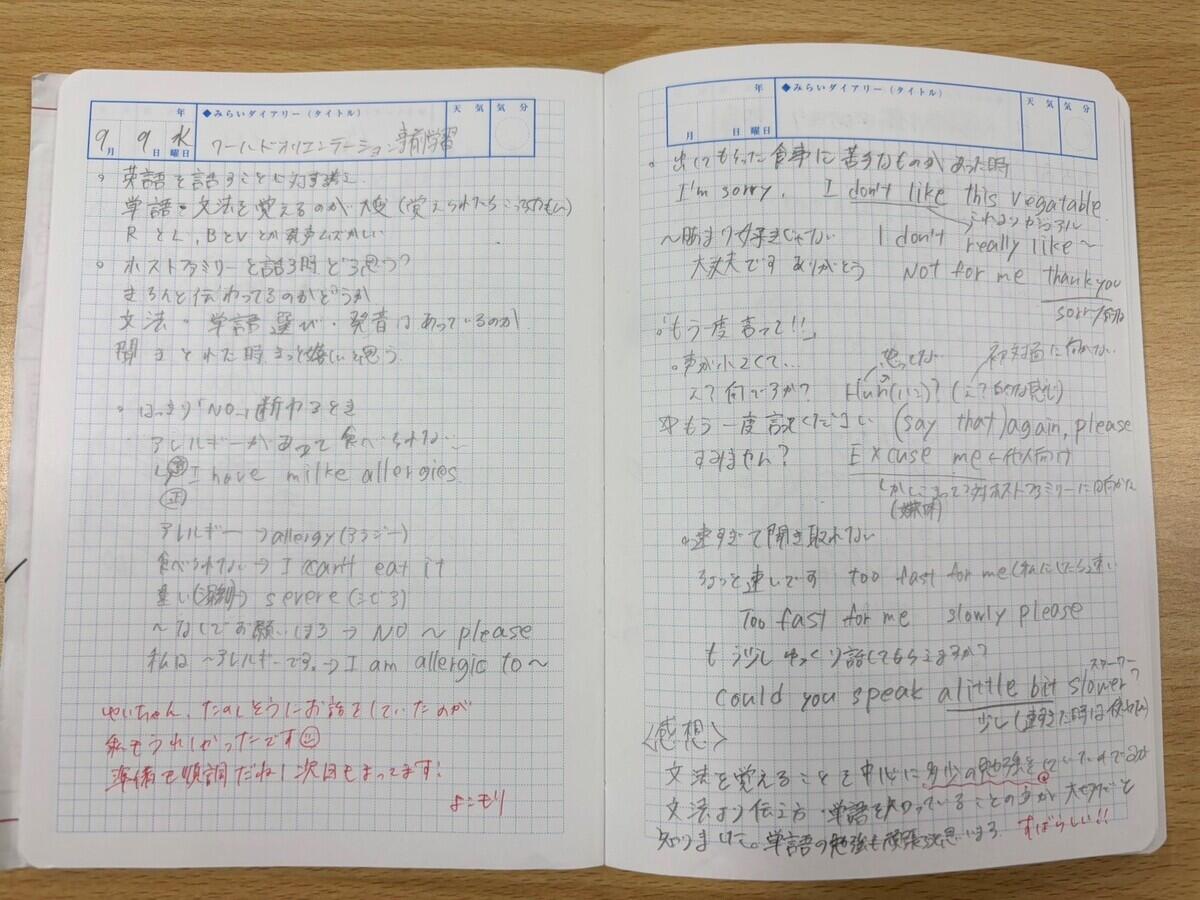 年
◆みらいダイアリー(タイトル)
天 気 気 分
9月 9日 水曜日
ワールドオリエンテーション事前学習
。英語を話すことに対する
単語・文法を覚えるのが大変(覚えられたら
RとL、BとVとか発声ムズかしい
。ホストファミリーと話す時どう思う?
きちんと伝わってるのかどうか
文法・単語選び・発音はあっているのか
聞きとれた時きっと嬉しいと思う
。はっきり「NO」断わるとき
アレルギーがあって食べられない
I have milke allergies
正
アレルギー→allergy(アラジー)
食べられない→I can't eat it
重い → severe (シビア)
~なしでお願いします→NO ~ please
私は~アレルギーです。→I am allergic to~
ゆいちゃん、たのしそうにお話をしていたのが
私もうれしかったです
準備も順調だね!次回もまってます!
よこもり
年
◆みらいダイアリー(タイトル)
天 気 気 分
月 日 曜日
。出してもらった食事に苦手なものがあった時
I'm sorry. I don't like this vegatable.
これよりカジュアル
~あまり好きじゃない I don't really like~
大丈夫です ありがとう Not for me thankyou
sorry/
。「もう一度言って!!」
。声が小さくて…
初対面に向かない
え?何ですか? Huh(ハニ)?
もう一度言ってください (say that)again, please
すみません? Excuse me ←他人向け
。速すぎて聞き取れない
ちょっと速いです too fast for me(私にしたら速い
Too fast for me slowly please
もう少しゆっくり話してもらえますか?
スローワー
Could you speak a little bit slower?
少し(速すぎた時は使わない)
〈感想〉
文法を覚えることを中心に多少の勉強をしていたのですが
文法より伝え方・単語を知っていることの方が大切だと
知りました。単語の勉強も頑張ろうと思います すばらしい!!